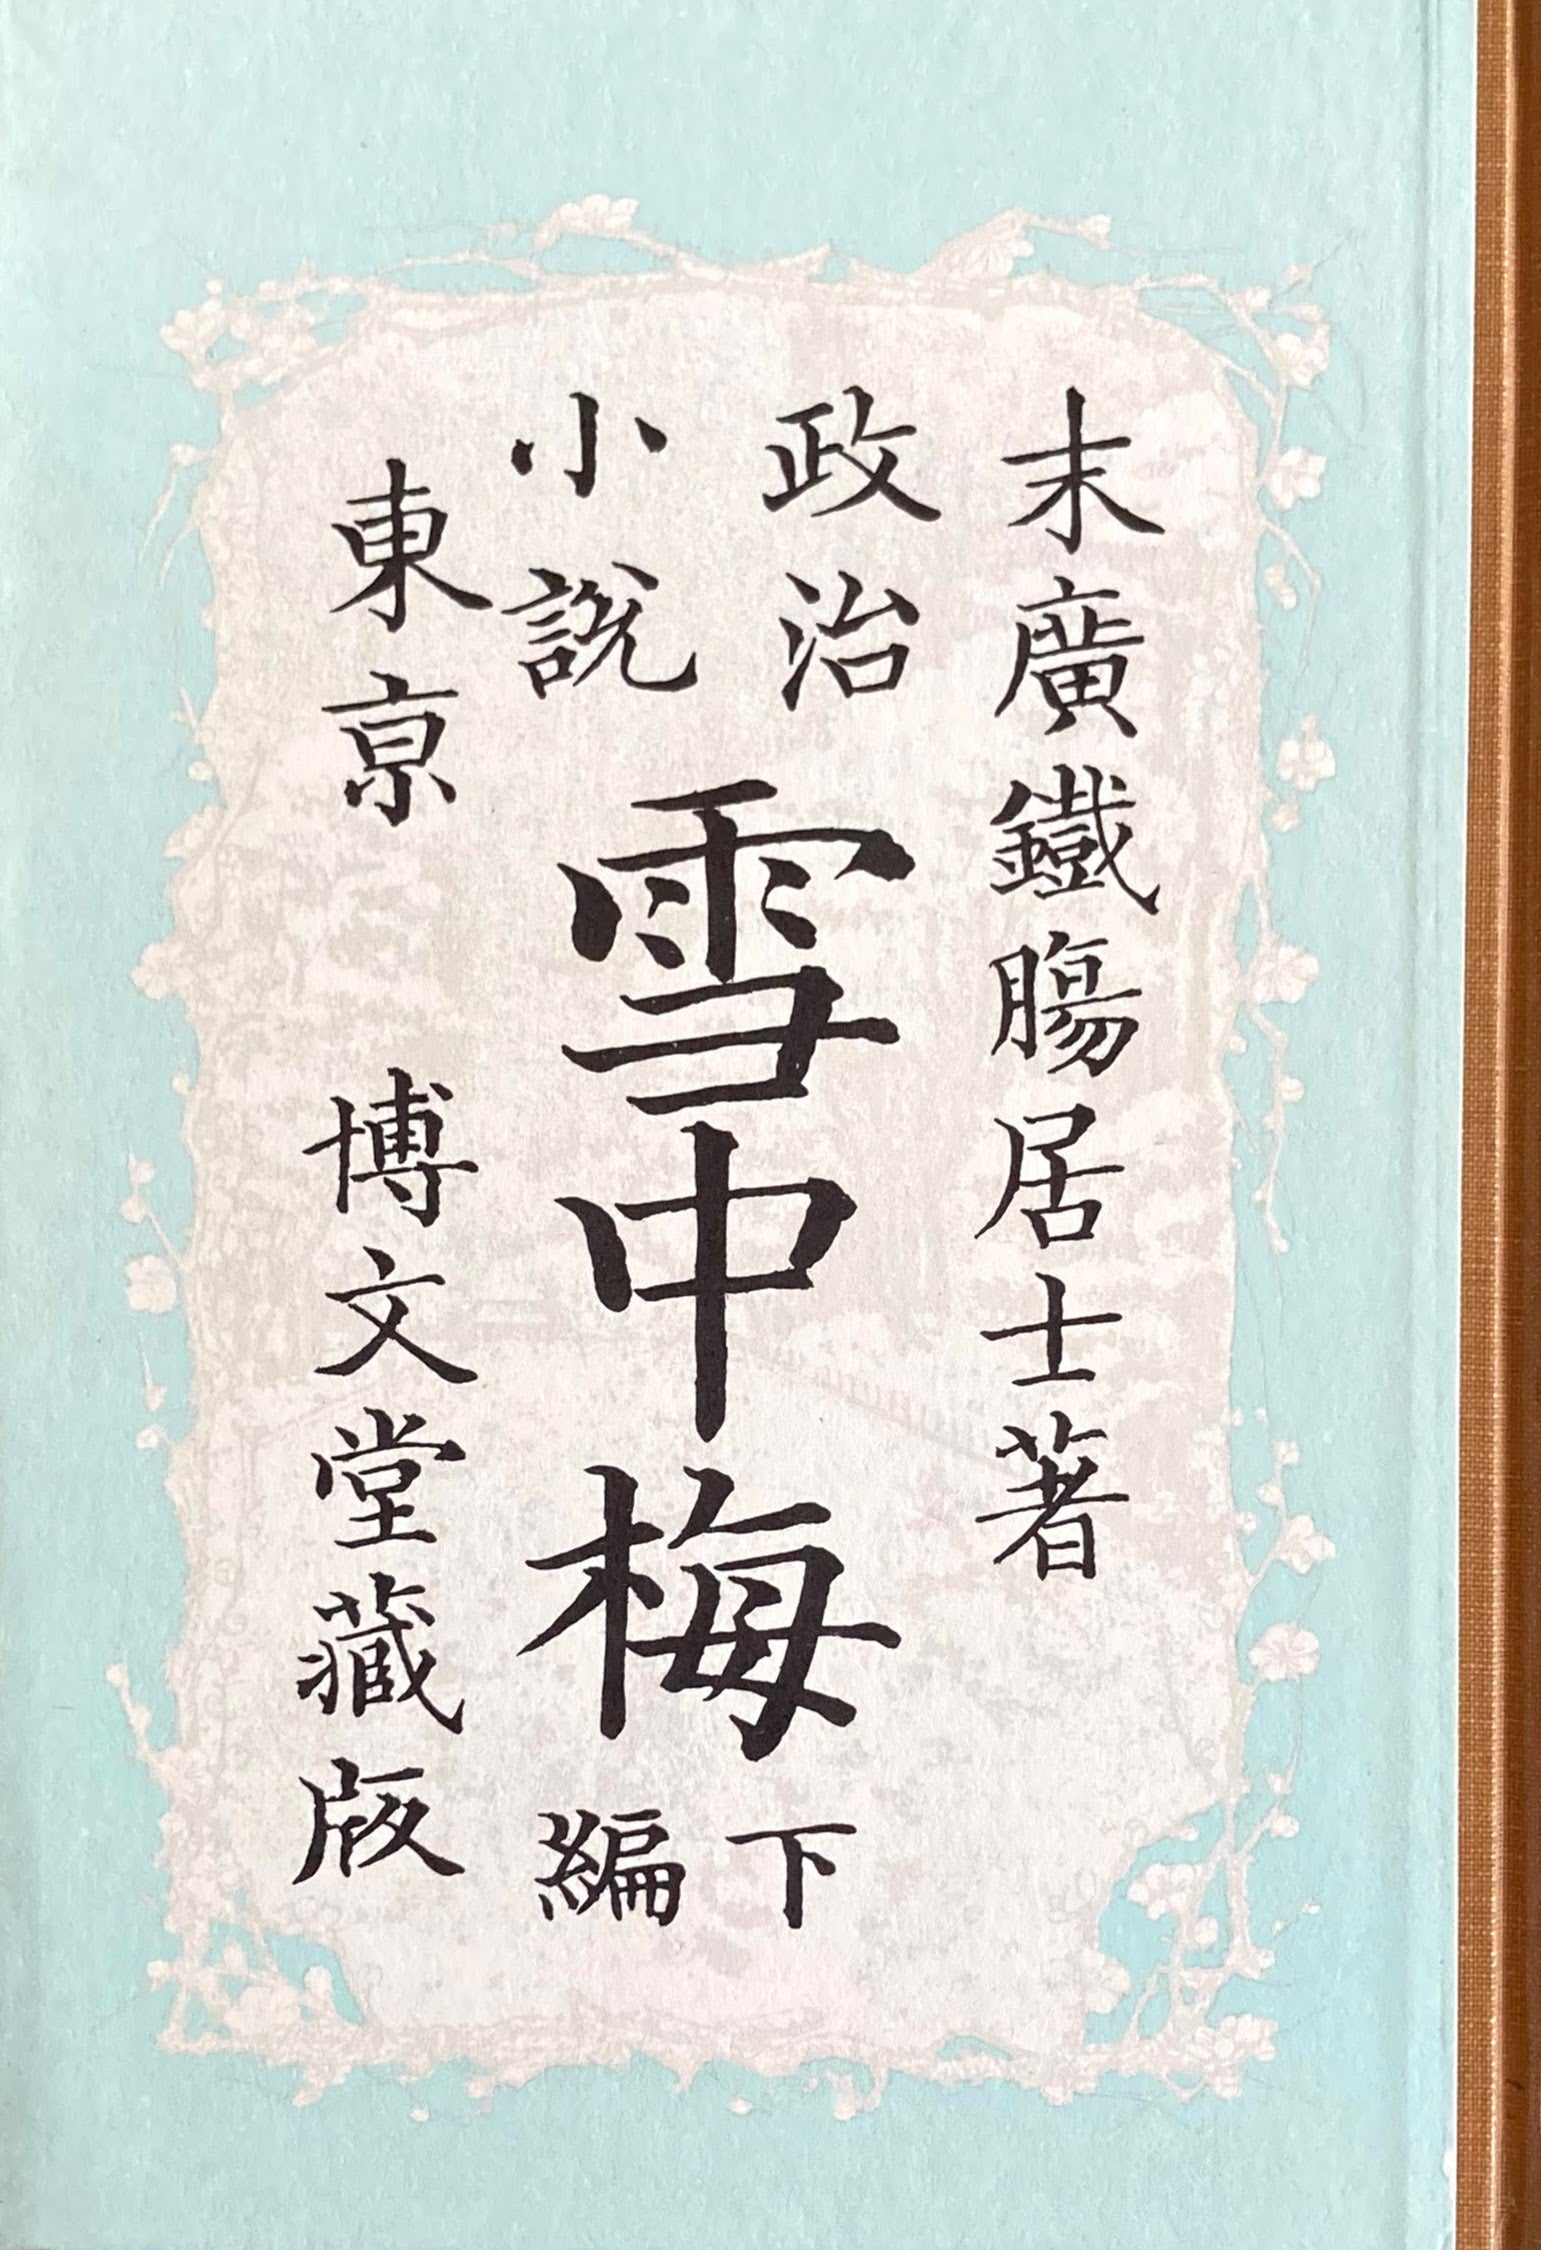 末廣鐵膓居士著
政治
小説
雪中梅
下
編
東亰
博文堂藏版